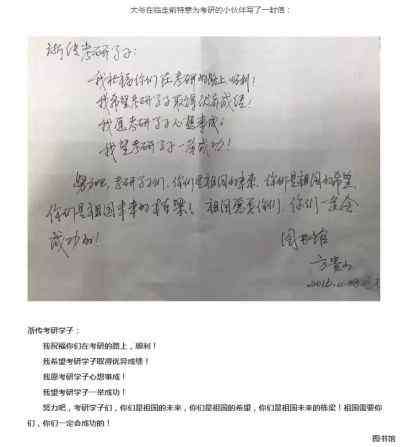 大爷在临走前特意为考研的小伙伴写了一封信：
浙传考研学子：
我祝福你们在考研的路上，顺利！
我希望考研学子取得优异成绩！
我愿考研学子心想事成！
我望考研学子一举成功！
努力吧，考研学子们，你们是祖国的未来，你们是祖国的希望，
你们是祖国未来的栋梁！祖国需要你们，你们一定会
成功的！
图书馆
浙传考研学子：
我祝福你们在考研的路上，顺利！
我希望考研学子取得优异成绩！
我愿考研学子心想事成！
我望考研学子一举成功！
努力吧，考研学子们，你们是祖国的未来，你们是祖国的希望，你们是祖国未来的栋梁！祖国需要你
们，你们一定会成功的！
图书馆